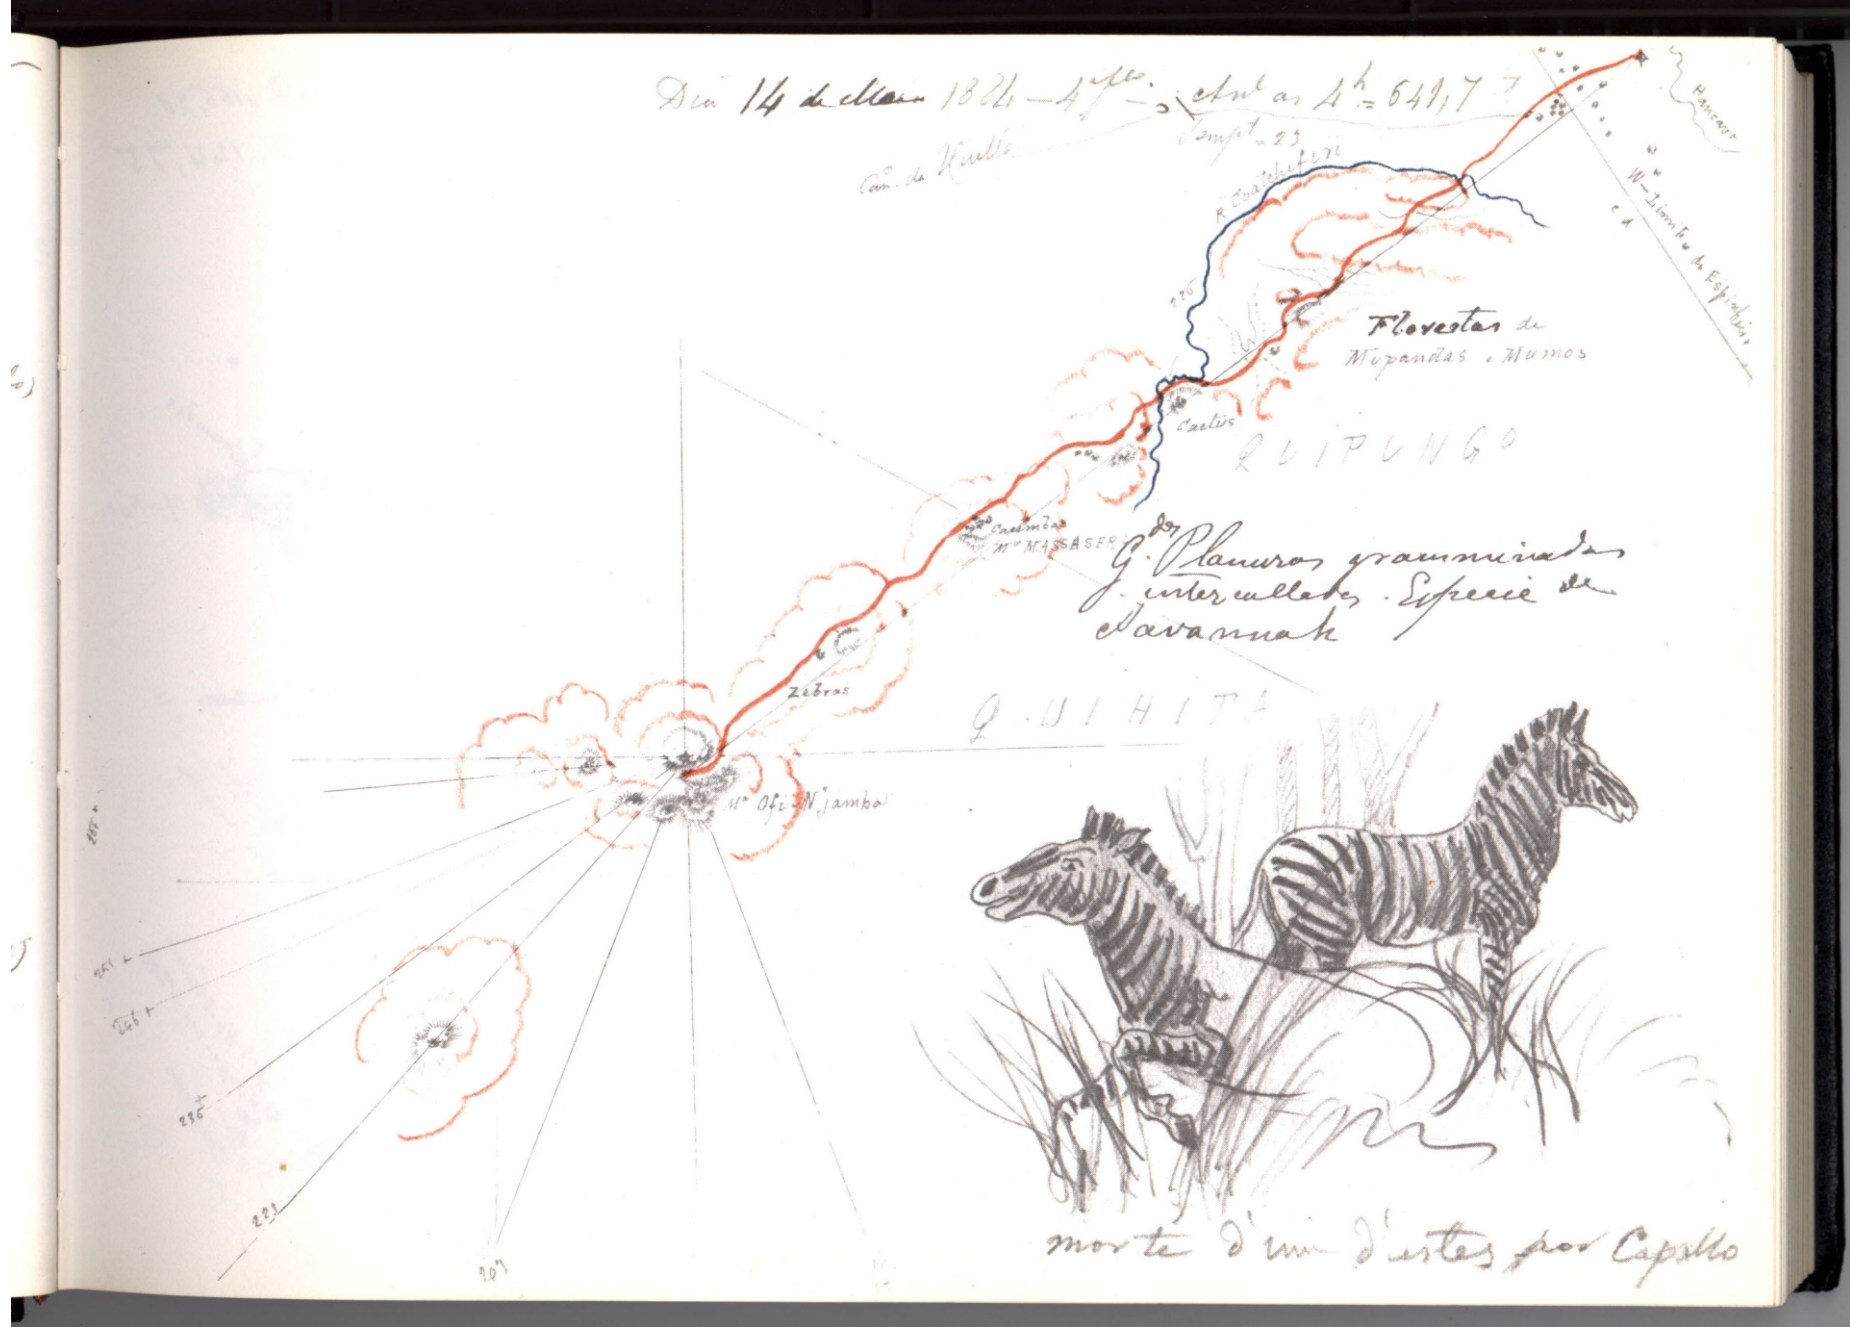 Dia 14 de Maio 1884 — 4
An. as 4h = 641,7
Tempt. = 23
Cam. da Huilla
Hancava
R. Coatchifiri
W — Limites do Espinheiro
226
Florestas de
Mupandas e Mumos
Cactus
QUIPUNGO
Cacimbas
Mte MASSASER
G.des Planuras gramminadas
intercalladas. Especie de
Savannah
Zebras
QUIHITA
N'jamba
265
251
246
235
223
209
morte d'um d'estes por Capello